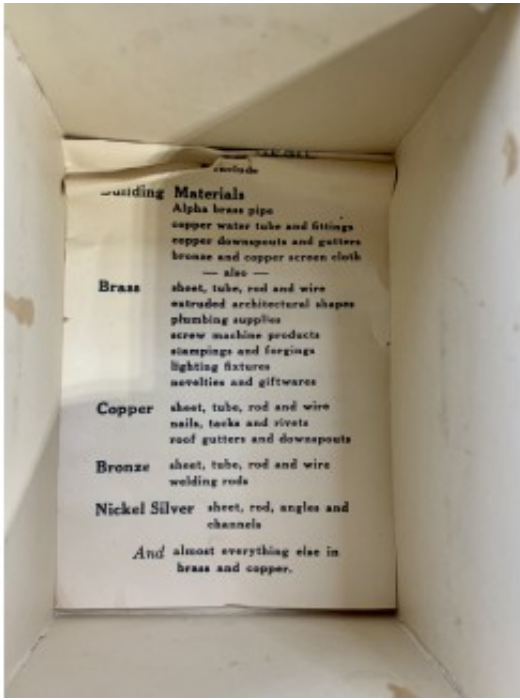 include
Building Materials
Alpha brass pipe
copper water tube and fittings
copper downspouts and gutters
bronze and copper screen cloth
— also —
Brass sheet, tube, rod and wire
extruded architectural shapes
plumbing supplies
screw machine products
stampings and forgings
lighting fixtures
novelties and giftwares
Copper sheet, tube, rod and wire
nails, tacks and rivets
roof gutters and downspouts
Bronze sheet, tube, rod and wire
welding rods
Nickel Silver sheet, rod, angles and
channels
And almost everything else in
brass and copper.